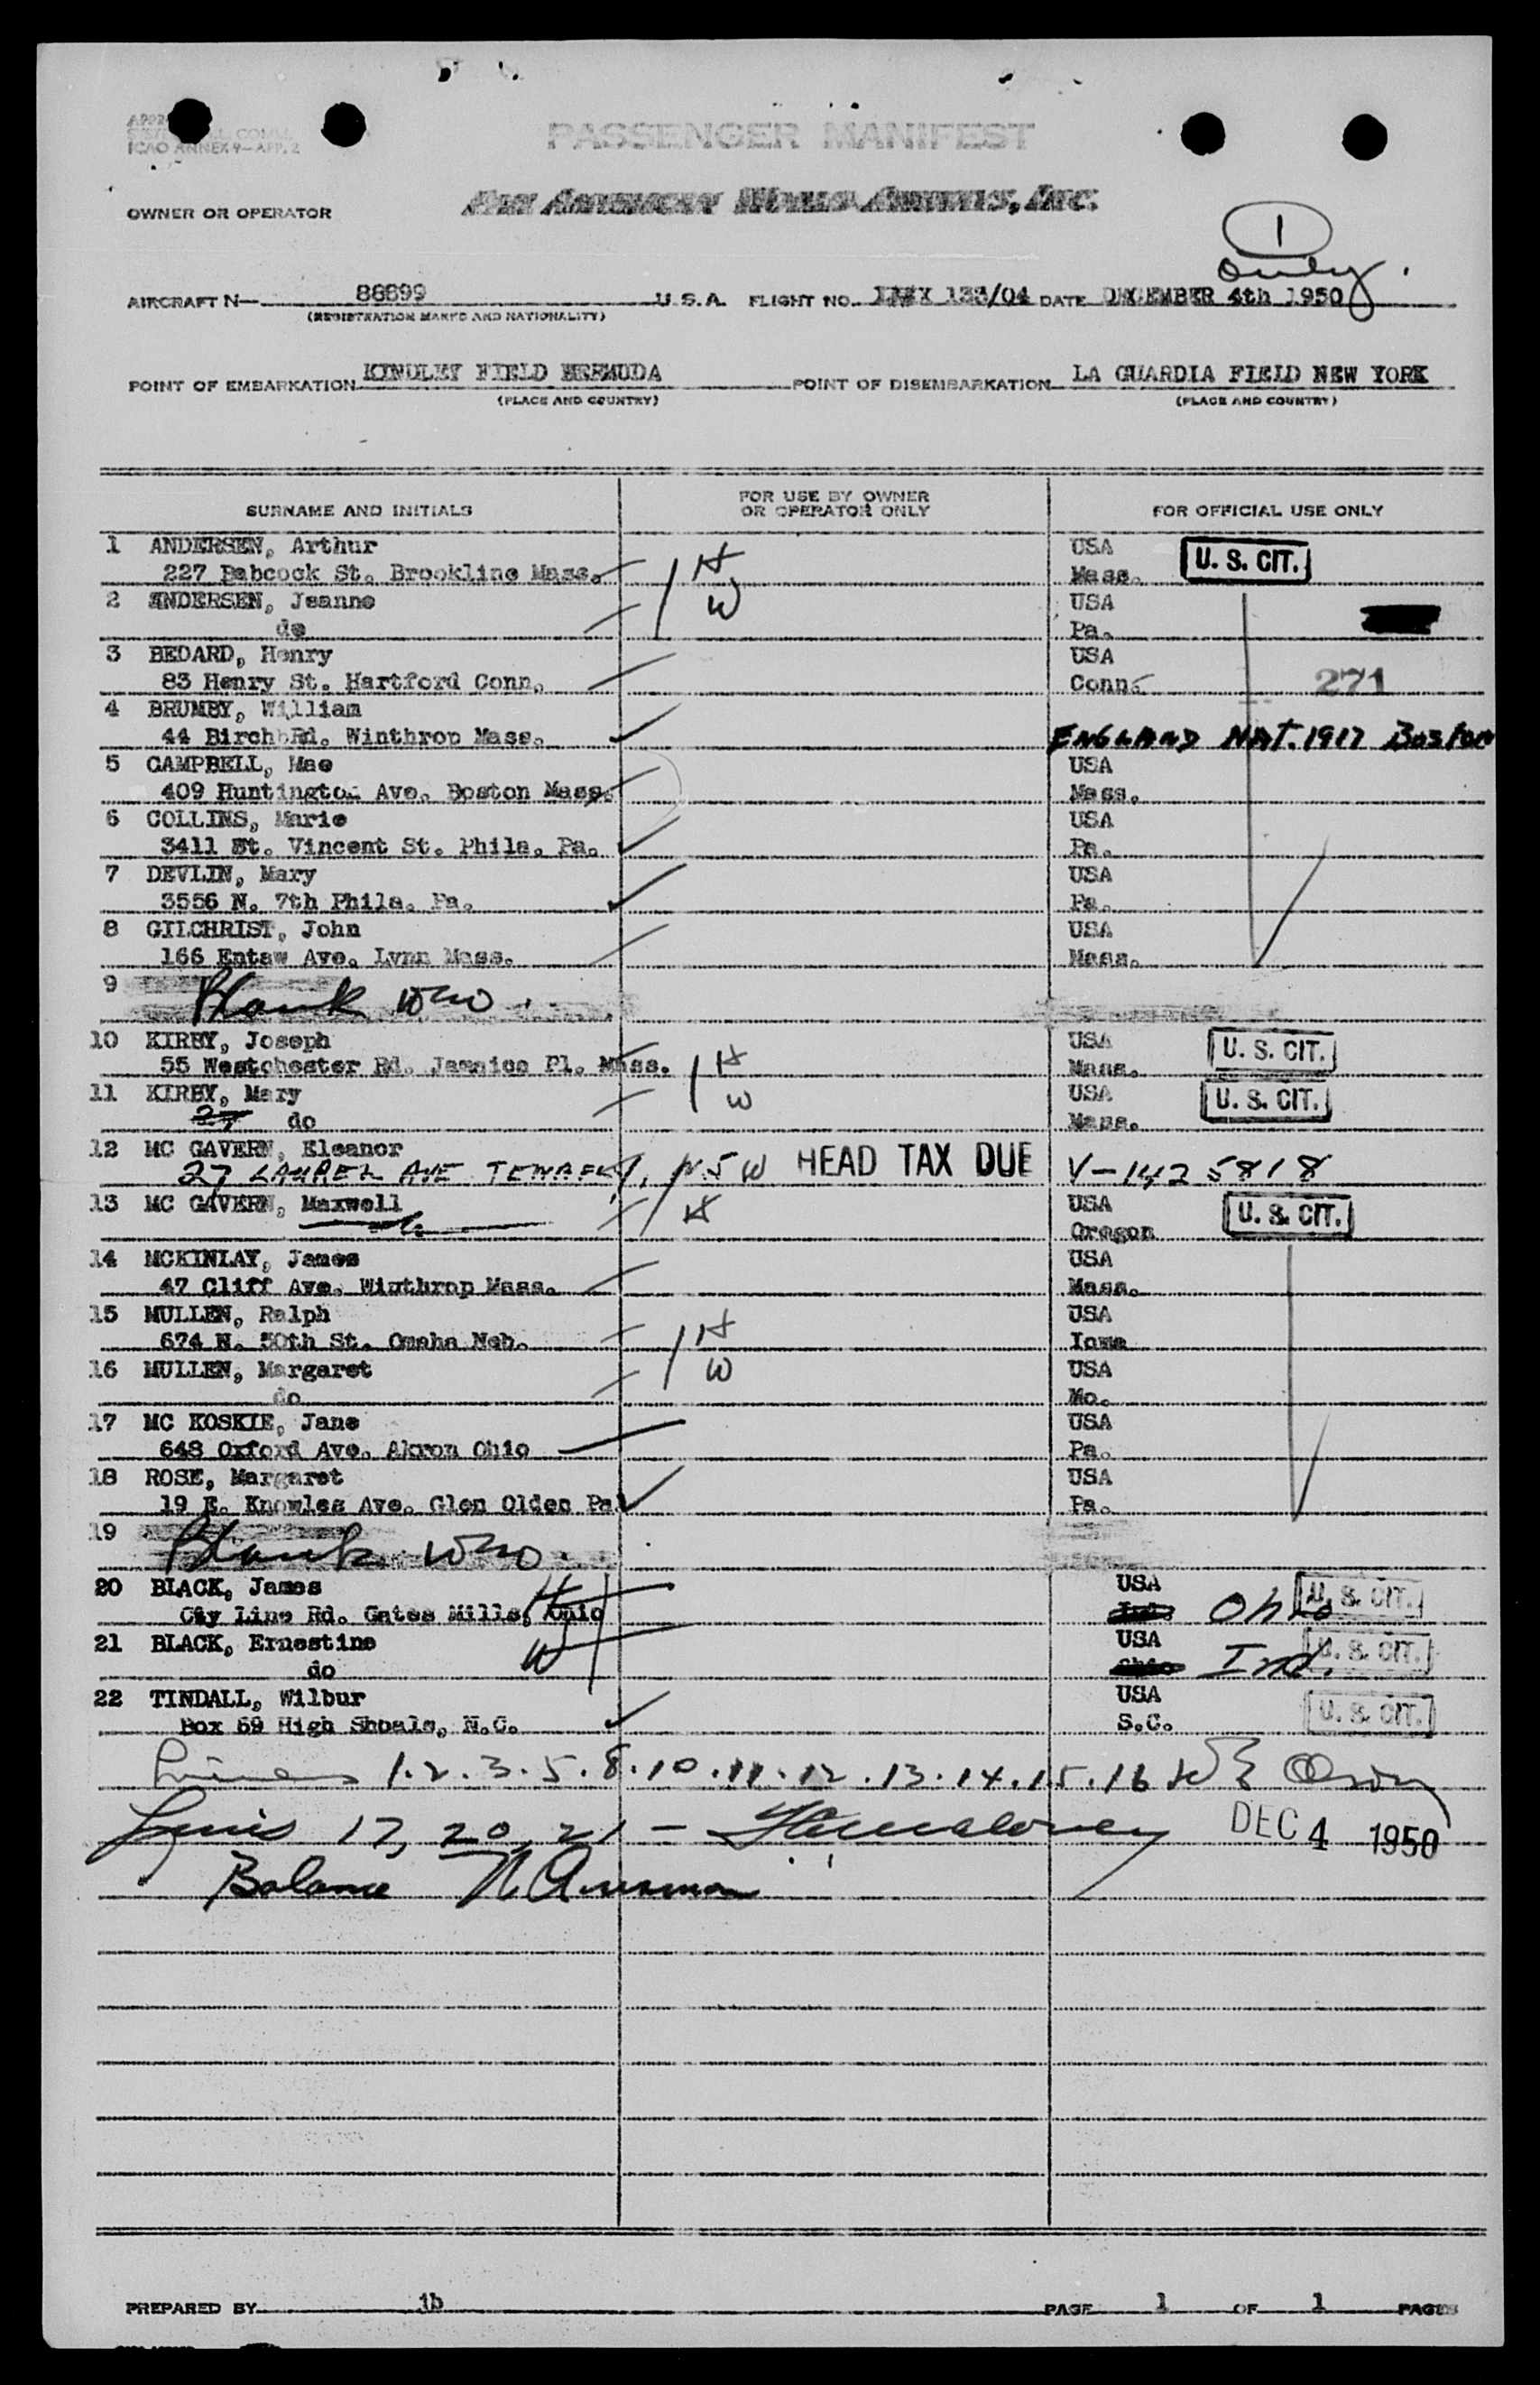 ICAO ANNEX 9—APP. 2
PASSENGER MANIFEST
OWNER OR OPERATOR PAN AMERICAN WORLD AIRWAYS, INC.
1
only.
AIRCRAFT N— 88899 U.S.A. FLIGHT NO. 133/04 DATE DECEMBER 4th 1950
(REGISTRATION MARKS AND NATIONALITY)
POINT OF EMBARKATION KINDLEY FIELD BERMUDA POINT OF DISEMBARKATION LA GUARDIA FIELD NEW YORK
(PLACE AND COUNTRY) (PLACE AND COUNTRY)
SURNAME AND INITIALS FOR USE BY OWNER OR OPERATOR ONLY FOR OFFICIAL USE ONLY
1 ANDERSEN, Arthur H USA U. S. CIT.
227 Babcock St. Brookline Mass. Mass.
2 ANDERSEN, Jeanne W USA
do Pa.
3 BEDARD, Henry USA
83 Henry St. Hartford Conn. Conn. 271
4 BRUMBY, William
44 Birch Rd. Winthrop Mass. ENGLAND NAT. 1917 Boston
5 CAMPBELL, Mae USA
409 Huntington Ave. Boston Mass. Mass.
6 COLLINS, Marie USA
3411 St. Vincent St. Phila. Pa. Pa.
7 DEVLIN, Mary USA
3556 N. 7th Phila. Pa. Pa.
8 GILCHRIST, John USA
166 Entaw Ave. Lynn Mass. Mass.
9 Blank
10 KIRBY, Joseph H USA U. S. CIT.
55 Westchester Rd. Jamaica Pl. Mass. Mass.
11 KIRBY, Mary W USA U. S. CIT.
27 do Mass.
12 MC GAVERN, Eleanor
27 LAUREL AVE TENAFLY, N.J. W HEAD TAX DUE V-1425818
13 MC GAVERN, Maxwell H USA U. S. CIT.
do Oregon
14 MCKINLAY, James USA
47 Cliff Ave. Winthrop Mass. Mass.
15 MULLEN, Ralph H USA
674 N. 50th St. Omaha Neb. Iowa
16 MULLEN, Margaret W USA
do Mo.
17 MC KOSKIE, Jane USA
648 Oxford Ave. Akron Ohio Pa.
18 ROSE, Margaret USA
19 E. Knowles Ave. Glen Olden Pa. Pa.
19 Blank
20 BLACK, James H USA U. S. CIT.
Cty Line Rd. Gates Mills, Ohio Ohio
21 BLACK, Ernestine W USA U. S. CIT.
do Ind.
22 TINDALL, Wilbur USA U. S. CIT.
Box 69 High Shoals, N.C. S.C.
Lines 1.2.3.5.8.10.11.12.13.14.15.16
Lines 17, 20, 21 — DEC 4 1950
Balance
PREPARED BY jb PAGE 1 OF 1 PAGES